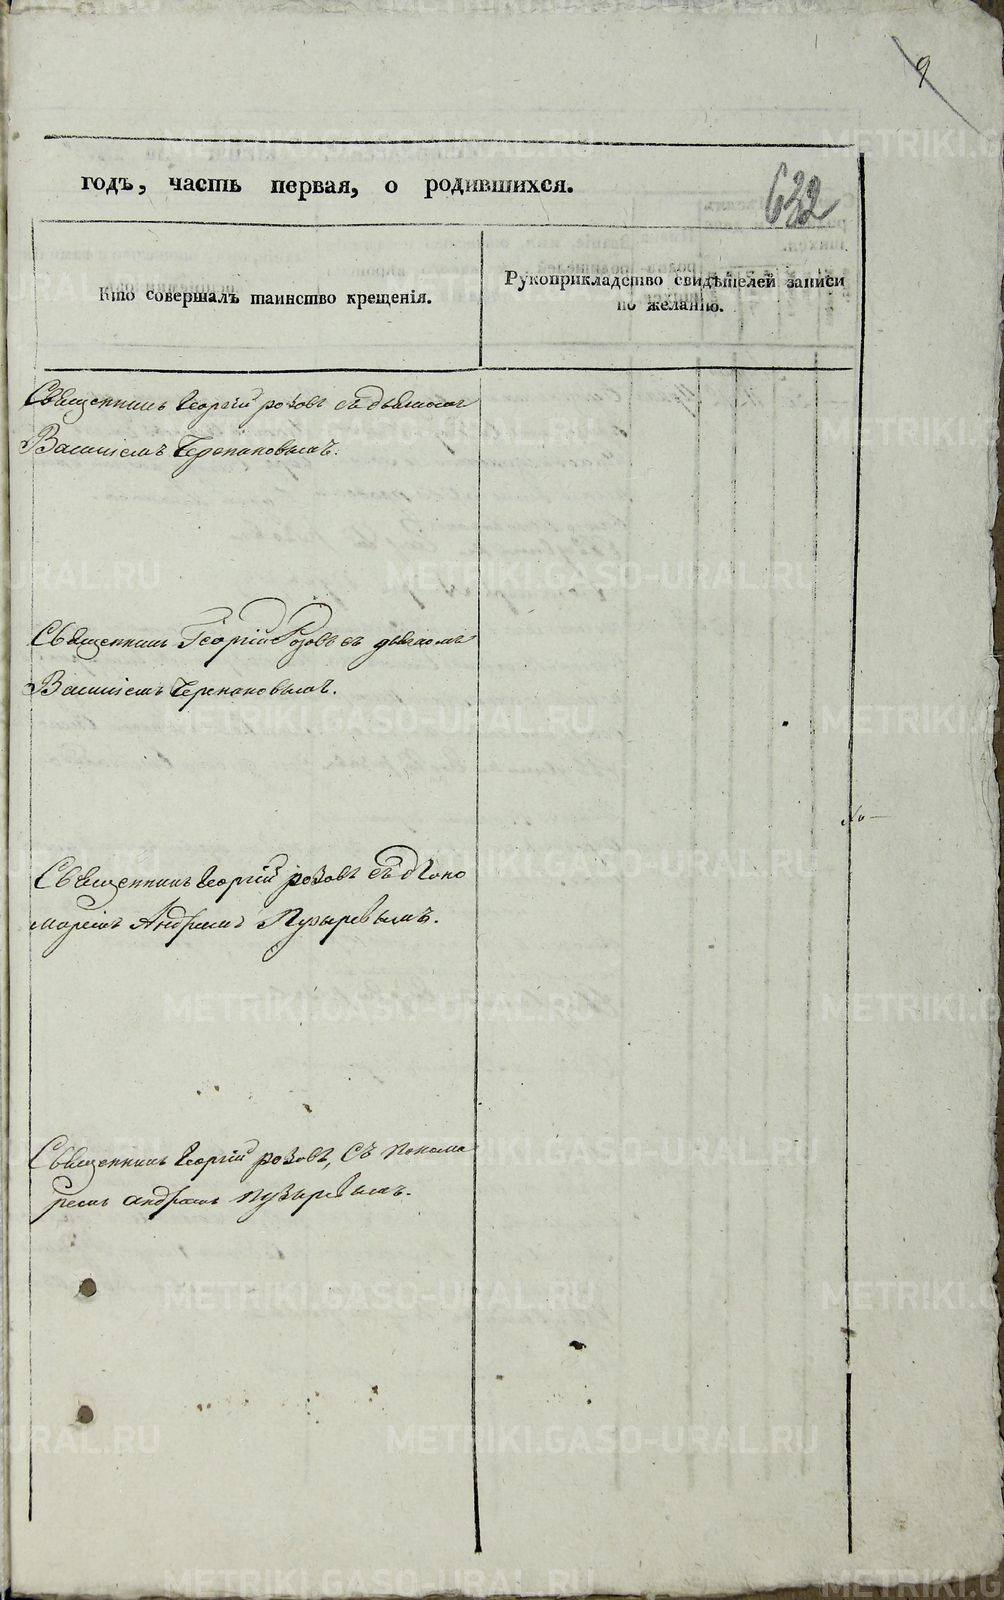 9
годъ, часть первая, о родившихся.
632
Кто совершалъ таинство крещенія.
Рукоприкладство свидѣтелей записи
по желанію.
Священникъ Георгій розовъ съ дьякомъ
Василіемъ Черепановымъ.
Священникъ Георгій Розовъ съ дьякомъ
Василіемъ Черепановымъ.
Священникъ Георгій розовъ съ
маремъ Андреемъ Пузыревымъ.
Священникъ Георгій розовъ, Съ понома
ремъ андреемъ пузыревымъ.
METRIKI.GASO-URAL.RU